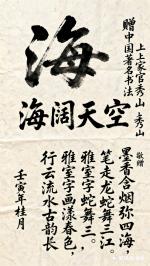 海
海阔天空
赠中国著名书法
上上家官秀山
秀山
敬赠
墨香含烟弥四海，
笔走龙蛇舞三江。
雅室字蛇舞三。
雅室字画漾春色，
行云流水古韵长
壬寅年桂月